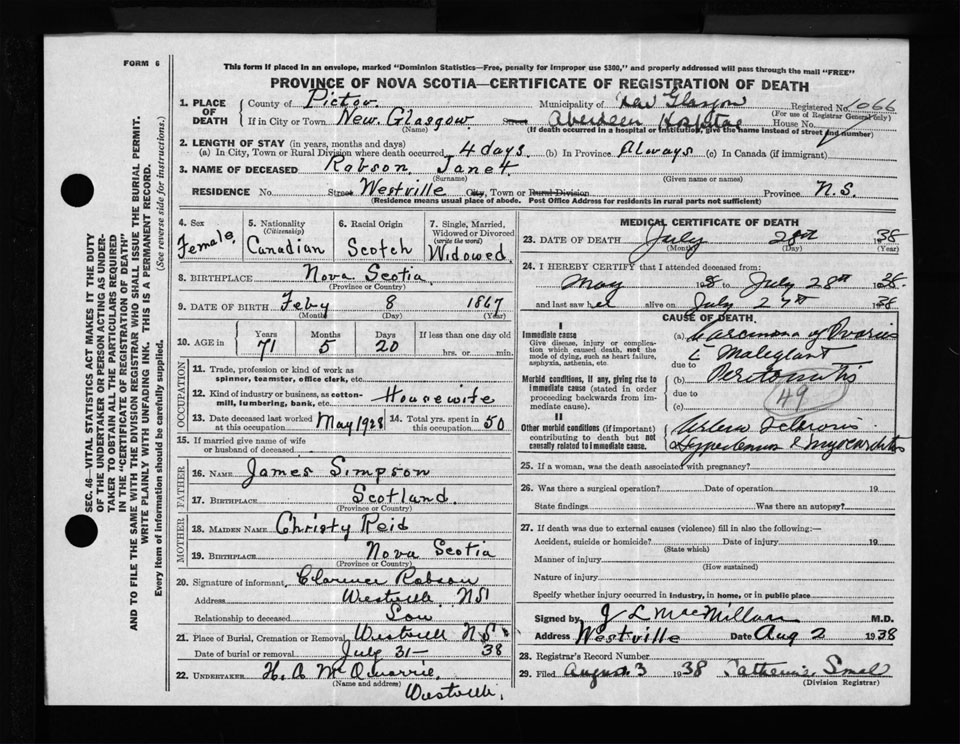 FORM 6
This form if placed in an envelope, marked "Dominion Statistics—Free, penalty for improper use $300," and properly addressed will pass through the mail "FREE"
PROVINCE OF NOVA SCOTIA—CERTIFICATE OF REGISTRATION OF DEATH
1. PLACE OF DEATH
County of Pictou Municipality of New Glasgow Registered No. 1066
(For use of Registrar General only)
If in City or Town New Glasgow Street Aberdeen Hospital House No.
(Name) (If death occurred in a hospital or institution, give the name instead of street and number)
2. LENGTH OF STAY (in years, months and days)
(a) In City, Town or Rural Division where death occurred 4 days. (b) In Province Always (c) In Canada (if immigrant)
3. NAME OF DECEASED Robson Janet
(Surname) (Given name or names)
RESIDENCE No. Street Westville City, Town or Rural Division Province N.S.
(Residence means usual place of abode. Post Office Address for residents in rural parts not sufficient)
4. Sex Female
5. Nationality (Citizenship) Canadian
6. Racial Origin Scotch
7. Single, Married, Widowed or Divorced (write the word) Widowed
8. BIRTHPLACE Nova Scotia
(Province or Country)
9. DATE OF BIRTH Feby 8 1867
(Month) (Day) (Year)
10. AGE in Years Months Days If less than one day old
71 5 20 hrs. or min.
OCCUPATION
11. Trade, profession or kind of work as spinner, teamster, office clerk, etc.
12. Kind of industry or business, as cotton-mill, lumbering, bank, etc. Housewife
13. Date deceased last worked at this occupation May 1928 14. Total yrs. spent in this occupation 50
15. If married give name of wife or husband of deceased
FATHER
16. NAME James Simpson
17. BIRTHPLACE Scotland
(Province or Country)
MOTHER
18. MAIDEN NAME Christy Reid
19. BIRTHPLACE Nova Scotia
(Province or Country)
20. Signature of informant Clarence Robson
Address Westville NS
Relationship to deceased Son
21. Place of Burial, Cremation or Removal Westville N.S.
Date of burial or removal July 31— 38
22. UNDERTAKER H. A. McQuarrie
(Name and address) Westville
MEDICAL CERTIFICATE OF DEATH
23. DATE OF DEATH July 28th 1938
(Month) (Day) (Year)
24. I HEREBY CERTIFY that I attended deceased from:
May 1938 to July 28th 1938
and last saw her alive on July 27th 1938
CAUSE OF DEATH
I
Immediate cause
Give disease, injury or complication which caused death, not the mode of dying, such as heart failure, asphyxia, asthenia, etc.
(a) Carcinoma of Ovaries
due to Malegiant
Morbid conditions, if any, giving rise to immediate cause (stated in order proceeding backwards from immediate cause).
(b) Peritonitis
due to
(c)
49
II
Other morbid conditions (if important) contributing to death but not causally related to immediate cause.
25. If a woman, was the death associated with pregnancy?
26. Was there a surgical operation? Date of operation 19
State findings Was there an autopsy?
27. If death was due to external causes (violence) fill in also the following:—
Accident, suicide or homicide? Date of injury 19
(State which)
Manner of injury
(How sustained)
Nature of injury
Specify whether injury occurred in industry, in home, or in public place
Signed by J L MacMillan M.D.
Address Westville Date Aug 2 1938
28. Registrar's Record Number
29. Filed August 3 1938 Catherine Small
(Division Registrar)
SEC. 46—VITAL STATISTICS ACT MAKES IT THE DUTY
OF THE UNDERTAKER OR PERSON ACTING AS UNDER-
TAKER TO OBTAIN ALL THE PARTICULARS REQUIRED
IN THE "CERTIFICATE OF REGISTRATION OF DEATH"
AND TO FILE THE SAME WITH THE DIVISION REGISTRAR WHO SHALL ISSUE THE BURIAL PERMIT.
WRITE PLAINLY WITH UNFADING INK. THIS IS A PERMANENT RECORD.
Every item of information should be carefully supplied. (See reverse side for instructions.)